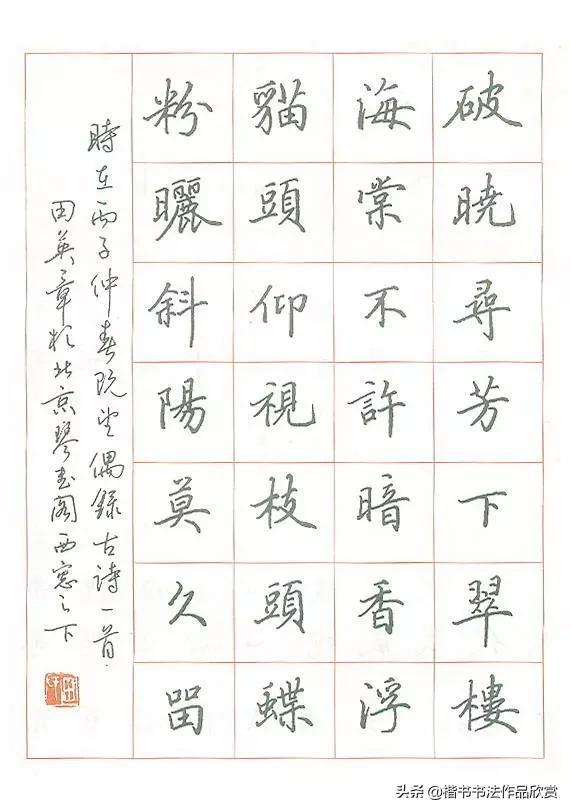 破曉尋芳下翠樓
海棠不許暗香浮
貓頭仰視枝頭蝶
粉曬斜陽莫久留
時在丙子仲春既望偶錄古詩一首
田英章於北京琴書閣西窗之下
头条@楷书书法作品欣赏